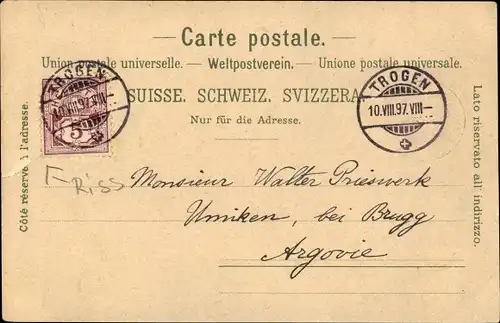 — Carte postale. —
Union postale universelle. — Weltpostverein. — Unione postale universale.
SUISSE. SCHWEIZ. SVIZZERA.
Nur für die Adresse.
Côté réservé à l'adresse.
Lato riservato all' indirizzo.
TROGEN
10.VIII.97.VIII-
5
TROGEN
10.VIII.97.VIII-
Riss
Monsieur Walter Prieswerk
Umiken, bei Brugg
Argovie